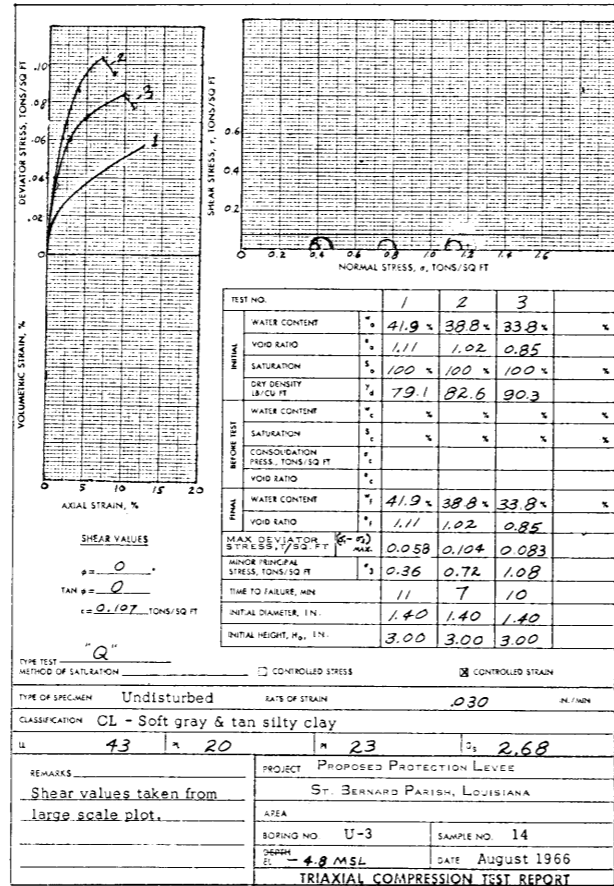 DEVIATOR STRESS, TONS/SQ FT
.10
.08
.06
.04
.02
0
2
3
1
SHEAR STRESS, τ, TONS/SQ FT
0.6
0.4
0.2
0 0.2 0.4 0.6 0.8 1.0 1.2 1.4 1.6
NORMAL STRESS, σ, TONS/SQ FT
VOLUMETRIC STRAIN, %
0 5 10 15 20
AXIAL STRAIN, %
SHEAR VALUES
φ = 0 °
TAN φ = 0
c = 0.107 TONS/SQ FT
TEST NO. 1 2 3
INITIAL
WATER CONTENT w₀ 41.9 % 38.8 % 33.8 % %
VOID RATIO e₀ 1.11 1.02 0.85
SATURATION S₀ 100 % 100 % 100 % %
DRY DENSITY LB/CU FT γd 79.1 82.6 90.3
BEFORE TEST
WATER CONTENT wc % % % %
SATURATION Sc % % % %
CONSOLIDATION PRESS., TONS/SQ FT σc
VOID RATIO ec
FINAL
WATER CONTENT wf 41.9 % 38.8 % 33.8 % %
VOID RATIO ef 1.11 1.02 0.85
MAX DEVIATOR STRESS, T/SQ. FT (σ₁-σ₃) MAX. 0.058 0.104 0.083
MINOR PRINCIPAL STRESS, TONS/SQ FT σ₃ 0.36 0.72 1.08
TIME TO FAILURE, MIN 11 7 10
INITIAL DIAMETER, IN. 1.40 1.40 1.40
INITIAL HEIGHT, H₀, IN. 3.00 3.00 3.00
TYPE TEST "Q"
METHOD OF SATURATION ☐ CONTROLLED STRESS ☒ CONTROLLED STRAIN
TYPE OF SPECIMEN Undisturbed RATE OF STRAIN .030 IN./MIN
CLASSIFICATION CL - Soft gray & tan silty clay
LL 43 PL 20 PI 23 Gs 2.68
REMARKS
Shear values taken from
large scale plot.
PROJECT PROPOSED PROTECTION LEVEE
ST. BERNARD PARISH, LOUISIANA
AREA
BORING NO. U-3 SAMPLE NO. 14
DEPTH
EL - 4.8 MSL DATE August 1966
TRIAXIAL COMPRESSION TEST REPORT